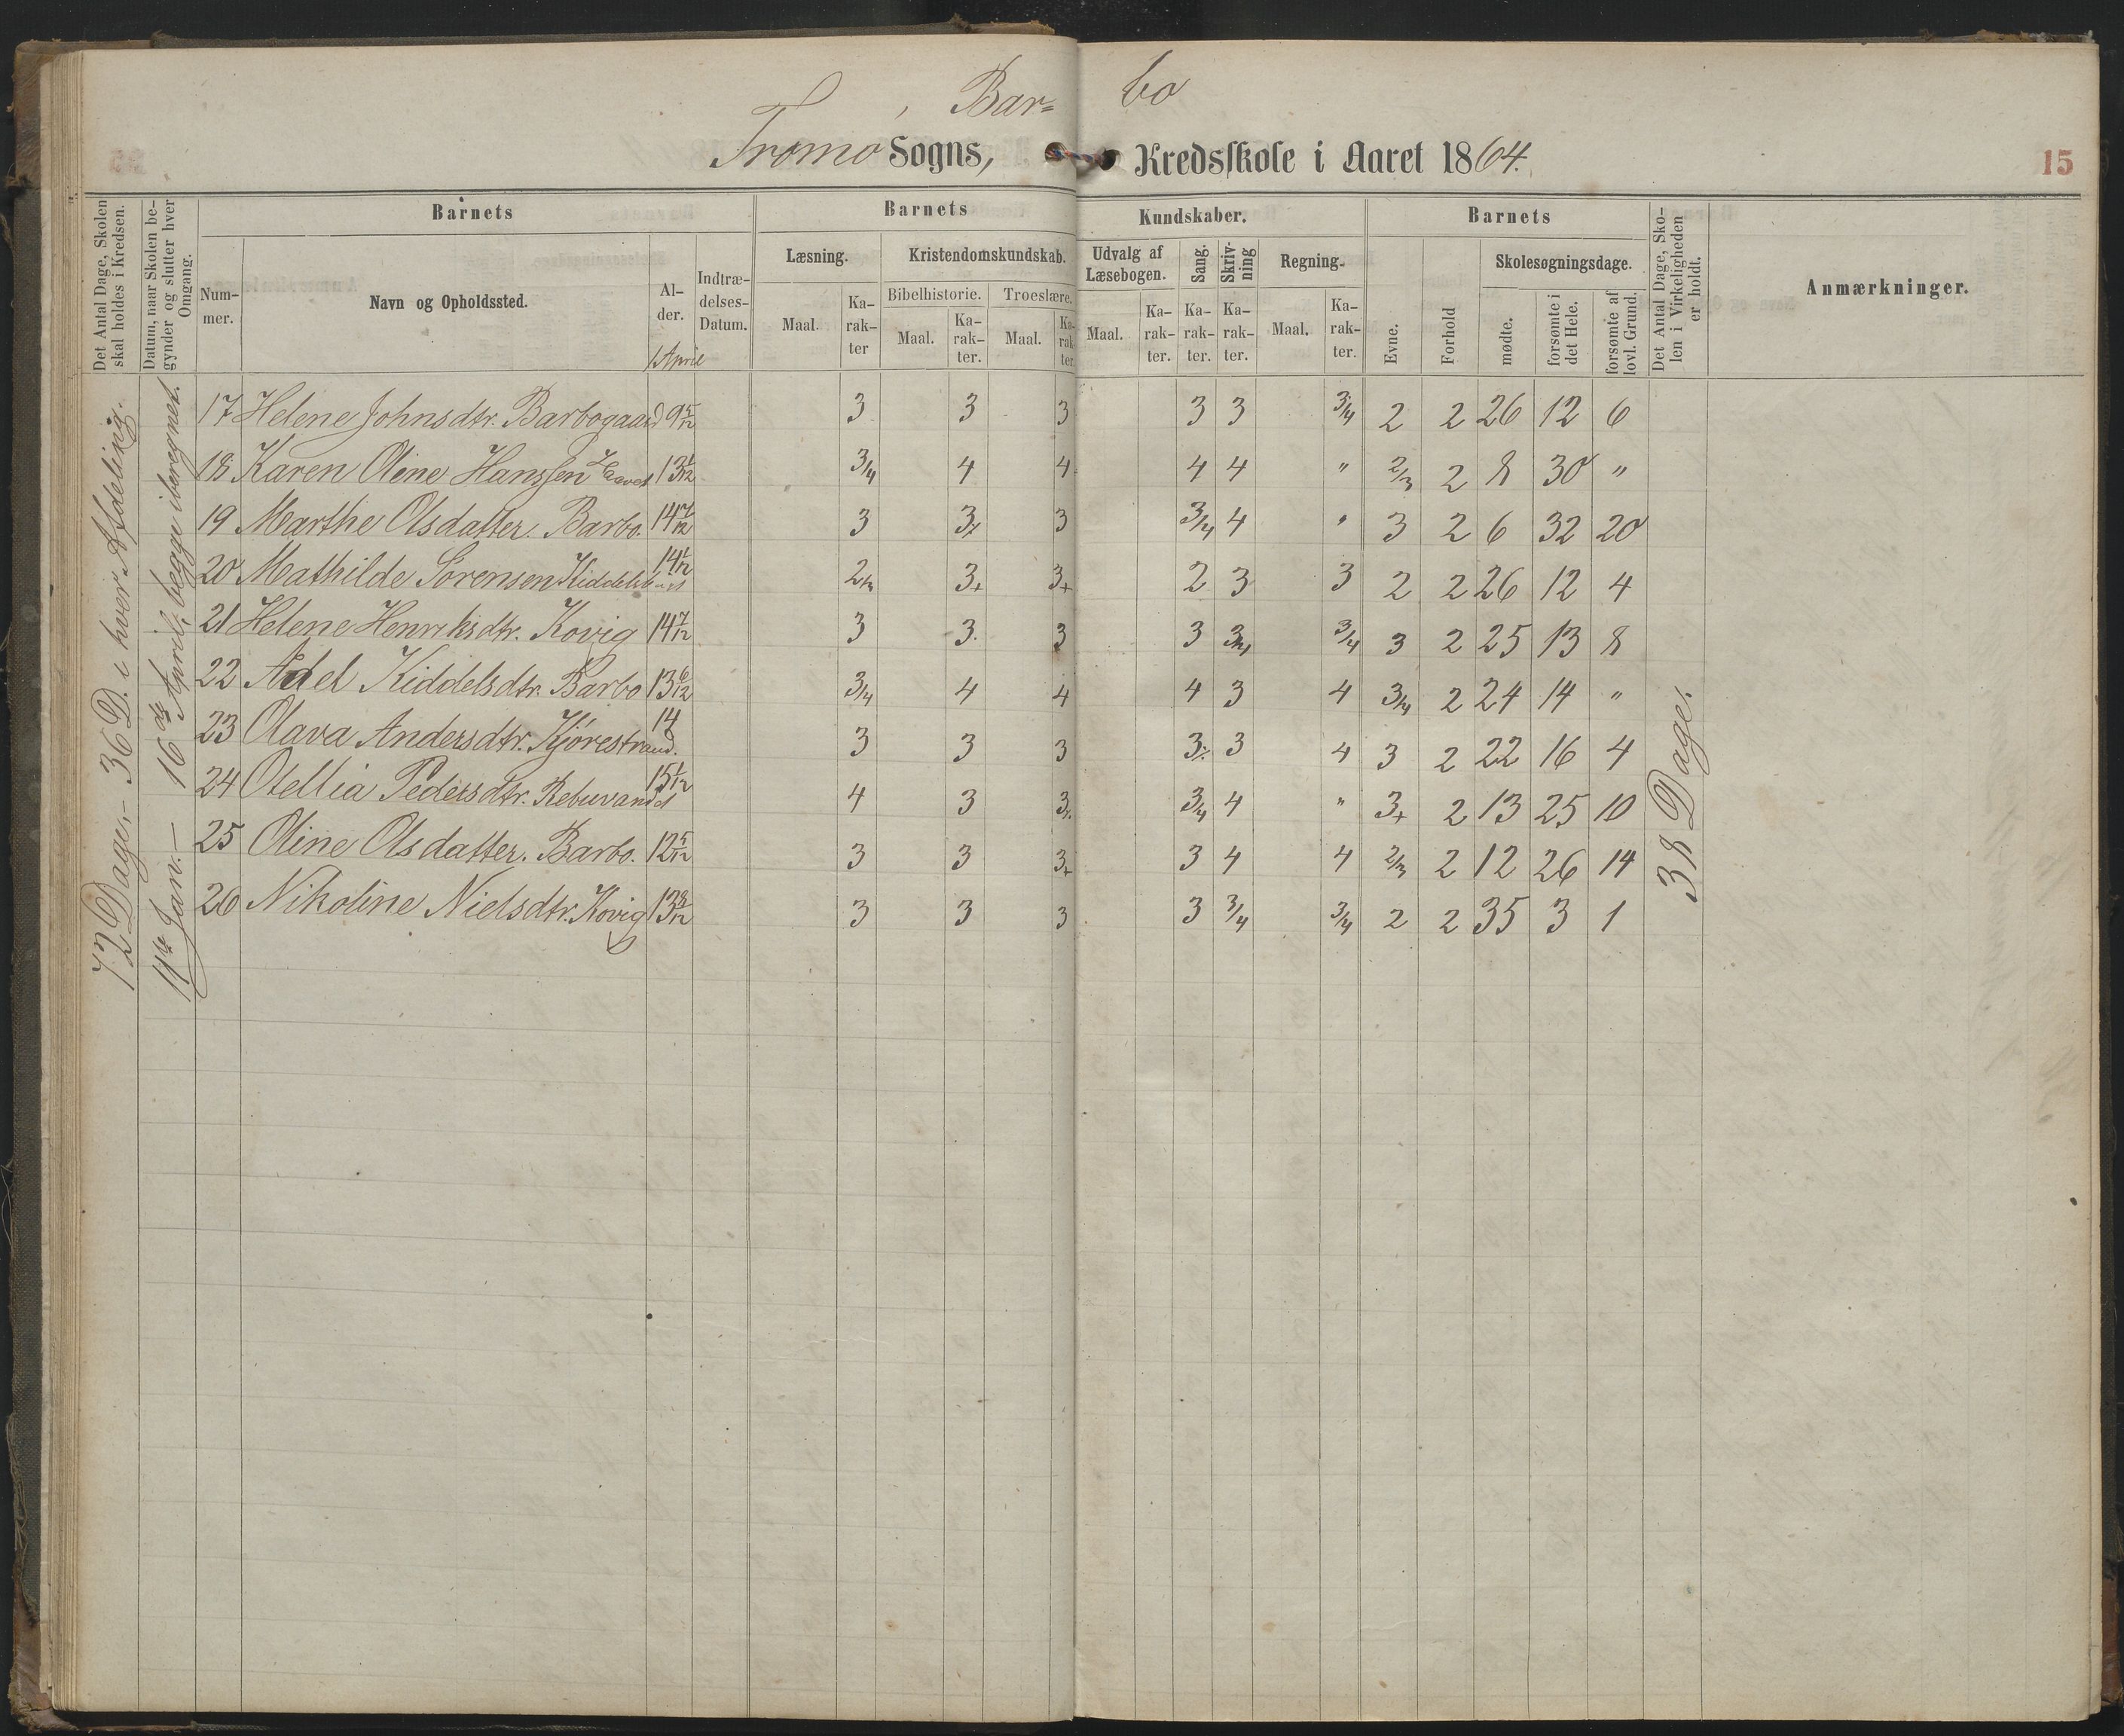 Bar= bo
Tromø Sogns, Kredsskole i Aaret 1864.
15
Det Antal Dage, Skolen skal holdes i Kredsen.
Datum, naar Skolen begynder og slutter hver Omgang.
Barnets
Nummer.
Navn og Opholdssted.
Alder.
1 April
Indtrædelses-Datum.
Barnets Kundskaber.
Læsning.
Maal.
Karakter
Kristendomskundskab.
Bibelhistorie.
Maal.
Karakter.
Troeslære.
Maal.
Karakter.
Udvalg af Læsebogen.
Maal.
Karakter.
Sang.
Karakter.
Skrivning
Karakter.
Regning.
Maal.
Karakter.
Barnets
Evne.
Forhold
Skolesøgningsdage.
mødte.
forsømte i det Hele.
forsømte af lovl. Grund.
Det Antal Dage, Skolen i Virkeligheden er holdt.
Anmærkninger.
72 Dage,- 36 D. i hver Afdeling.
11te Jan. – 16de April, begge iberegnet.
17 Helene Johnsdtr. Barbogaard 9 5/12 3 3 3 3 3 3/4 2 2 26 12 6
18 Karen Oline Hanssen 13 1/12 3/4 4 4 4 4 " 2/3 2 8 30 "
19 Marthe Olsdatter. Barbo. 14 7/12 3 3 3 3/4 4 " 3 2 6 32 20
20 Mathilde Sørensen 14 1/12 2/3 3+ 3+ 2 3 3 2 2 26 12 4
21 Helene Henriksdtr. Kovig 14 7/12 3 3 3 3 3/4 3/4 3 2 25 13 8
22 Adel Kiddelsdtr. Barbo 13 6/12 3/4 4 4 4 3 4 3/4 2 24 14 "
23 Olava Andersdtr. Kjørestrand. 14 3 3 3 3 3 4 3 2 22 16 4
24 Otellia Pedersdtr. 15 1/12 4 3 3 3/4 4 " 3+ 2 13 25 10
25 Oline Olsdatter. Barbo. 12 5/12 3 3 3+ 3 4 4 2/3 2 12 26 14
26 Nikoline Nielsdtr. Kovig 13 8/12 3 3 3 3 3/4 3/4 2 2 35 3 1
38 Dage.